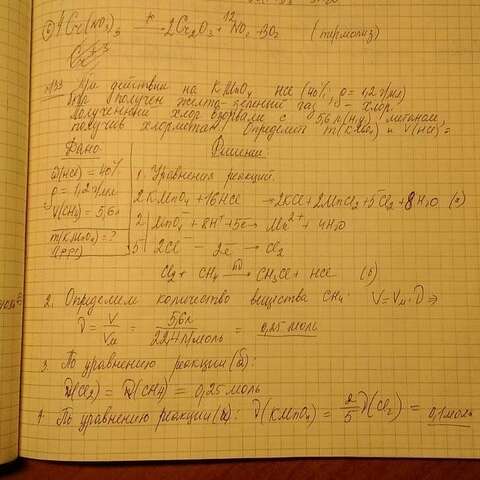 4Cr(NO3)3 → 2Cr2O3 + 12NO2 + 3O2 (термолиз)
При действии на KMnO4 HCl (40%, ρ=1,2 г/мл)
был получен желто-зеленый газ - хлор.
Полученный хлор взорвали с 5,6 л (н.у.) метаном,
получив хлорметан. Определить m(KMnO4) и V(HCl) =
Дано Решение
ω(HCl) = 40% 1. Уравнения реакций.
ρ = 1,2 г/мл 2KMnO4 + 16HCl → 2KCl + 2MnCl2 + 5Cl2 + 8H2O (а)
V(CH4) = 5,6 л 2 | MnO4⁻ + 8H⁺ + 5e → Mn²⁺ + 4H2O
m(KMnO4) = ? 5 | 2Cl⁻ - 2e → Cl2
Cl2 + CH4 → CH3Cl + HCl (б)
2. Определим количество вещества CH4. V = Vм · ν ⇒
ν = V/Vм = 5,6 л/22,4 л/моль = 0,25 моль
3. По уравнению реакции (б):
ν(Cl2) = ν(CH4) = 0,25 моль
4. По уравнению реакции (а): ν(KMnO4) = 2/5 ν(Cl2) = 0,1 моль